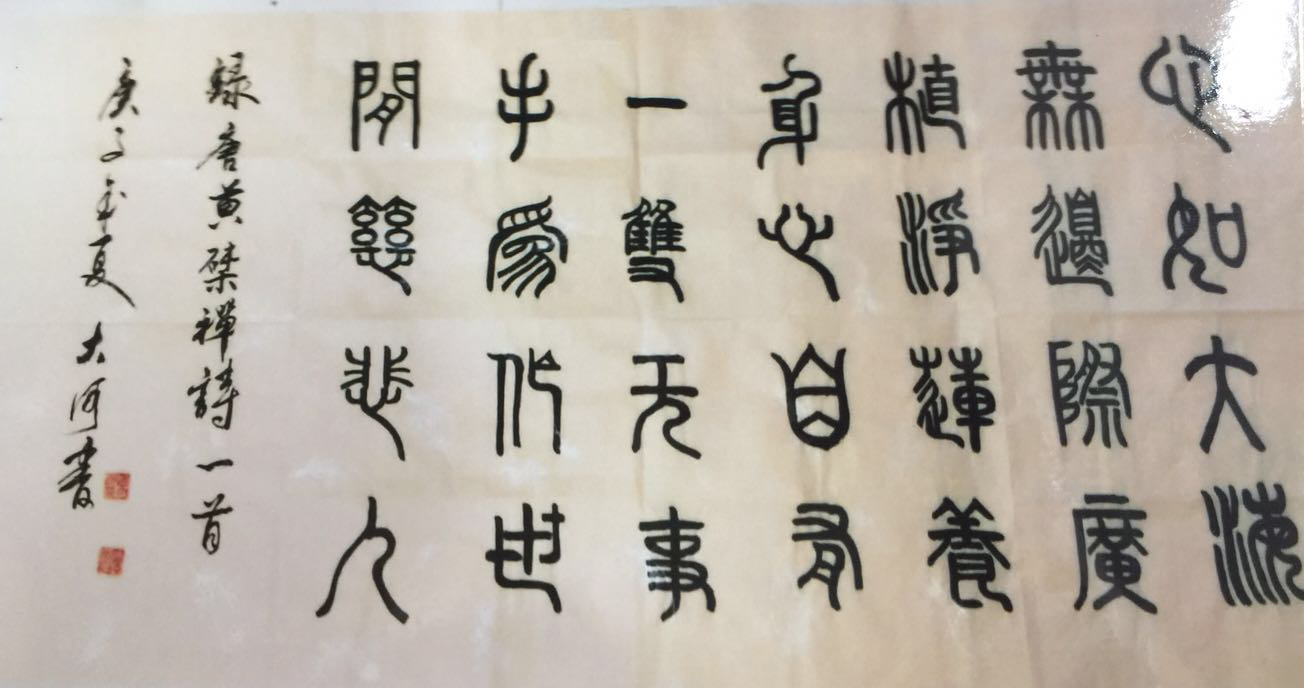 心如大海
無邊際廣
植淨蓮養
身心自有
一雙无事
手為代世
間慈悲人
錄唐黄檗禪詩一首
庚子年夏大河書